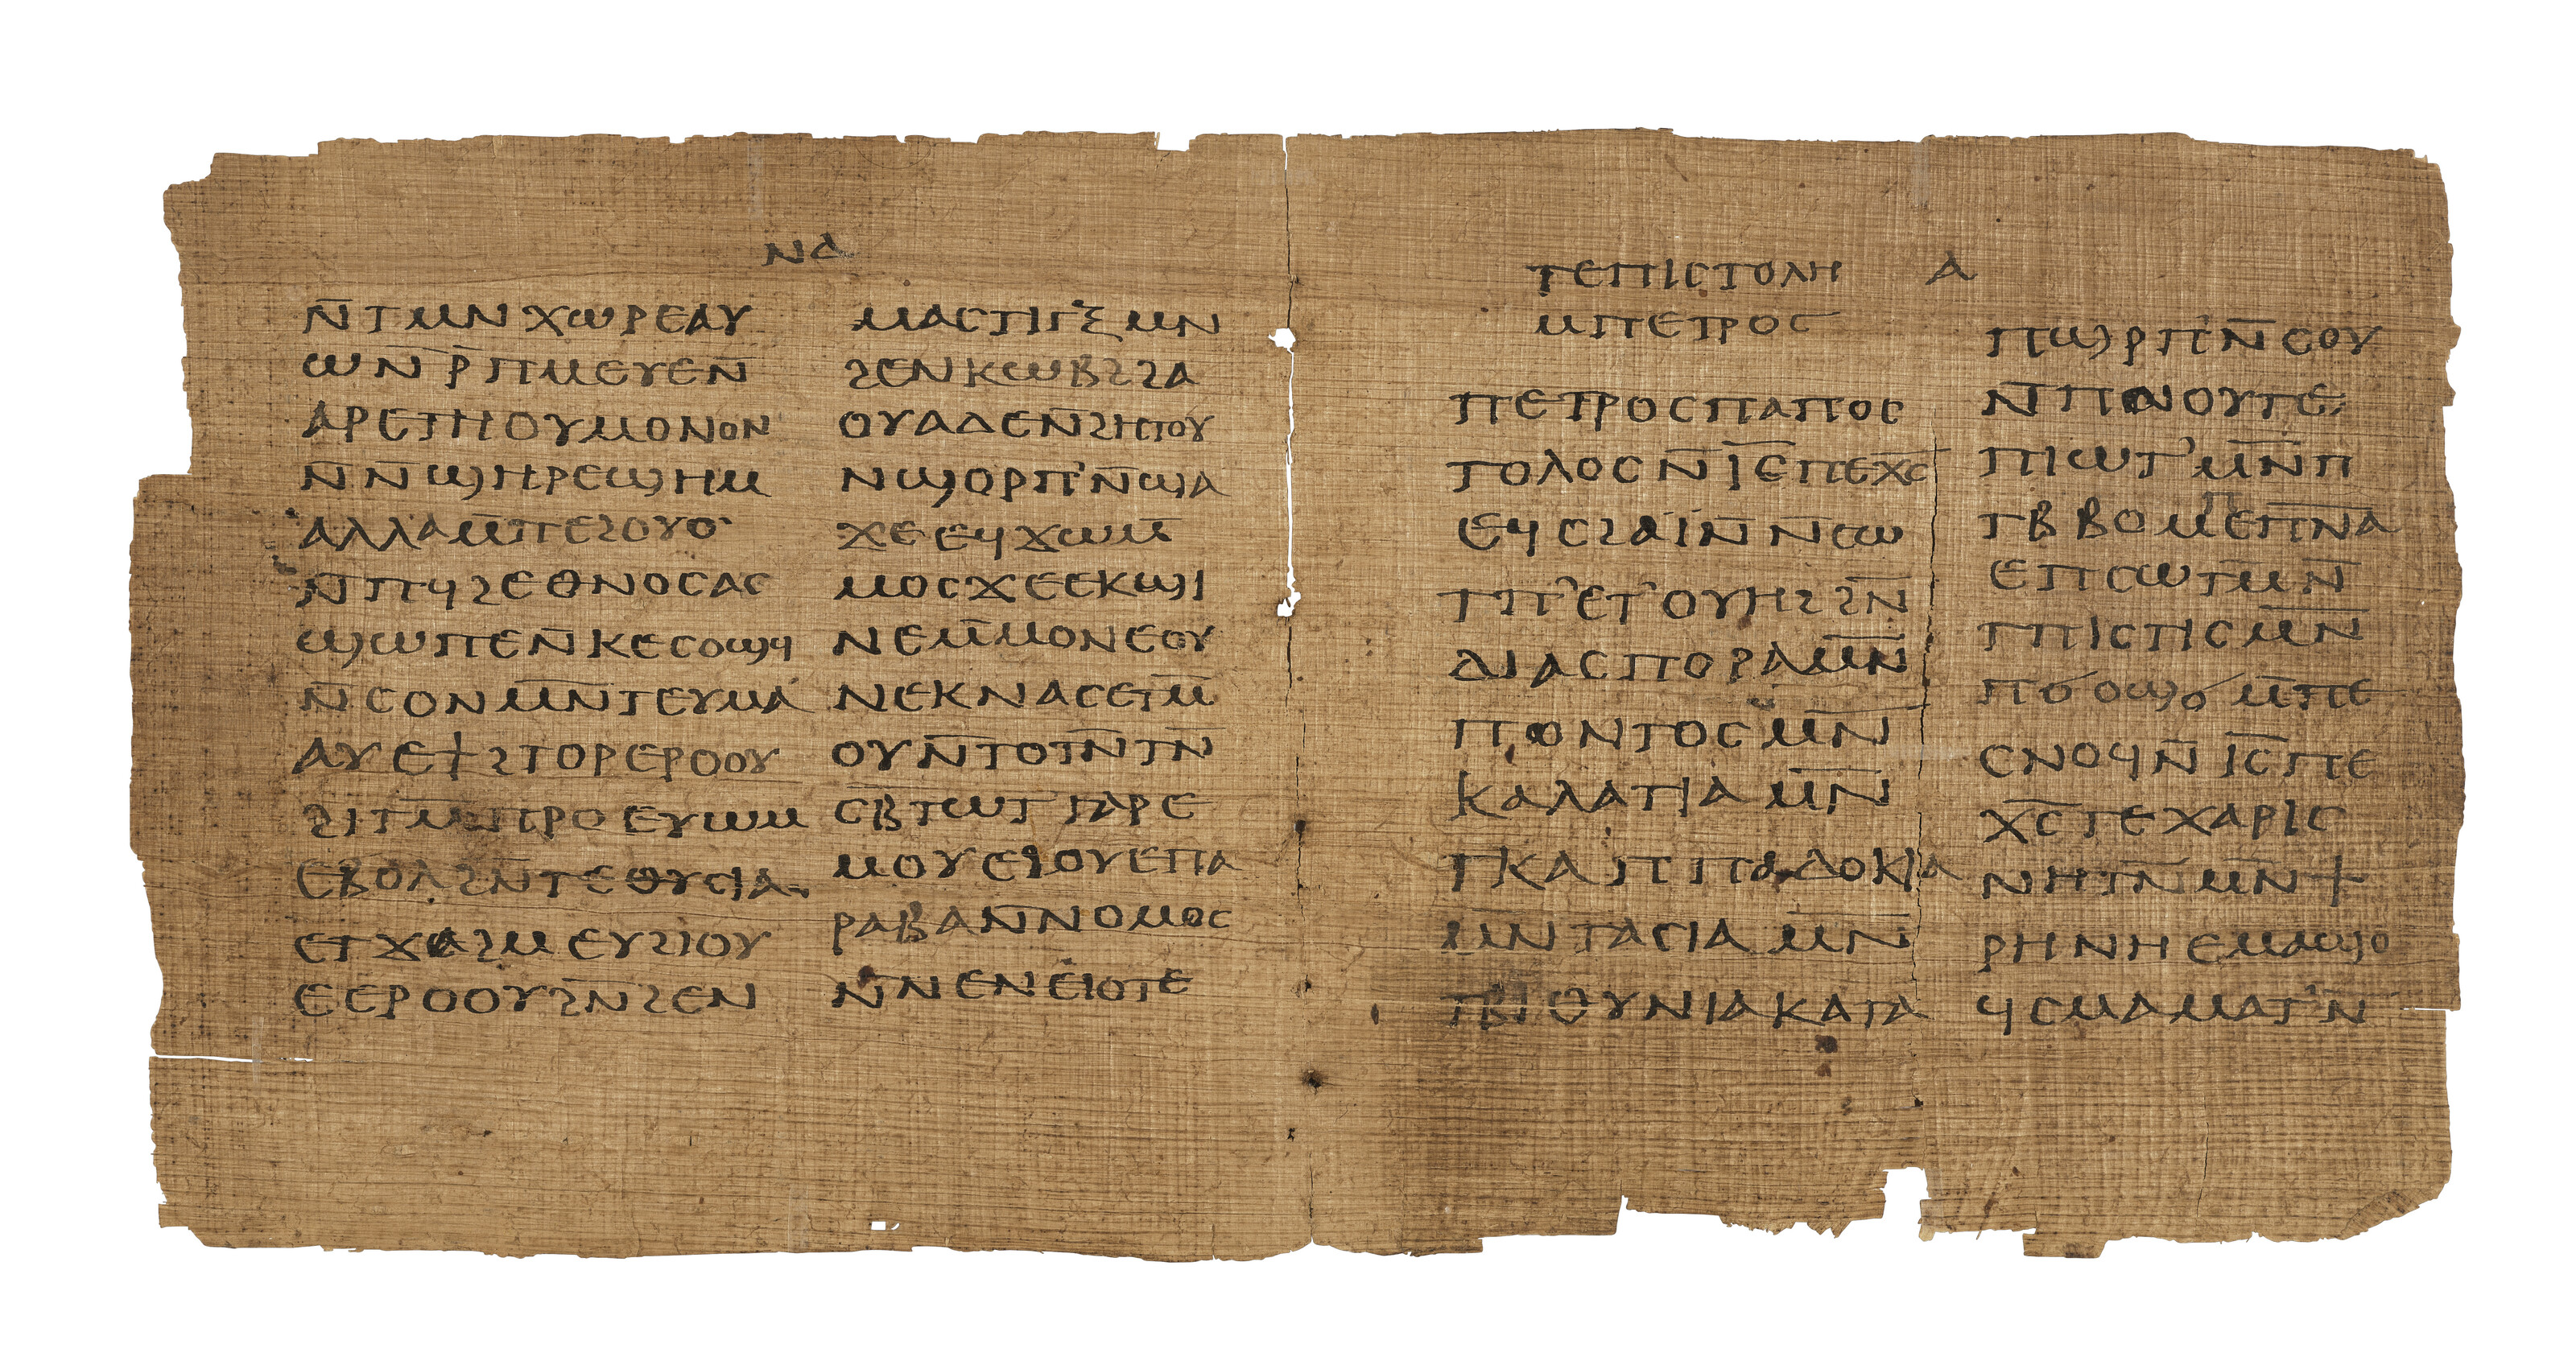 ⲛⲁ
ⲛ̄ⲧⲙⲛⲭⲱⲣⲉⲁⲩ
ⲱⲛ̄ⲣ̄ⲡⲙⲉⲩⲉⲛ̄
ⲁⲣⲉⲧⲏⲟⲩⲙⲟⲛⲟⲛ
ⲛ̄ⲛ̄ϣⲏⲣⲉϣⲏⲙ
ⲁⲗⲗⲁⲙ̄ⲡⲉϩⲟⲩⲟ
ⲛ̄ⲡϥϩⲉⲑⲛⲟⲥⲁⲥ
ϣⲱⲡⲉⲛ̄ⲕⲉⲥⲟϣϥ
ⲛ̄ⲥⲟⲛⲙ̄ⲛ̄ⲧⲉⲩⲙⲁ
ⲁⲩⲉϯϩⲧⲟⲣⲉⲣⲟⲟⲩ
ϩⲓⲧⲙ̄ⲡⲣⲟⲉⲩⲱⲙ
ⲉⲃⲟⲗϩⲛ̄ⲧⲉⲑⲩⲥⲓⲁ
ⲉⲧϫⲁϩⲙⲉⲩϩⲓⲟⲩ
ⲉⲉⲣⲟⲟⲩϩⲛ̄ϩⲉⲛ
ⲙⲁⲥⲧⲓⲅⲝⲙⲛ
ϩⲉⲛⲕⲱⲃϩϩⲁ
ⲟⲩⲁⲇⲉⲛ̄ϩⲏⲧⲟⲩ
ⲛϣⲟⲣⲡ'ⲛ̄ϣⲁ
ϫⲉⲉϥϫⲱⲙ̄
ⲙⲟⲥϫⲉⲉⲕϣⲓ
ⲛⲉⲙ̄ⲙⲟⲛⲉⲟⲩ
ⲛⲉⲕⲛⲁⲥⲉⲧⲙ̄
ⲟⲩⲛ̄ⲧⲟⲧⲛ̄ⲧⲛ̄
ⲥⲃ̄ⲧⲱⲧ'ⲡⲁⲣⲉ
ⲙⲟⲩⲉϩⲟⲩⲉⲡⲁ
ⲣⲁⲃⲁⲛ̄ⲛⲟⲙⲟⲥ
ⲛ̄ⲛⲉⲛⲉⲓⲟⲧⲉ
ⲧⲉⲡⲓⲥⲧⲟⲗⲏ ⲁ
ⲙⲡⲉⲧⲣⲟⲥ
ⲡⲉⲧⲣⲟⲥⲡⲁⲡⲟⲥ
ⲧⲟⲗⲟⲥⲛ̄ⲓ̄ⲥ̄ⲡⲉⲭ̄ⲥ̄
ⲉϥⲥϩⲁⲓ̈ⲛ̄ⲛ̄ⲥⲱ
ⲧⲡ'ⲉⲧ'ⲟⲩⲏϩϩⲛ̄
ⲇⲓⲁⲥⲡⲟⲣⲁⲙ̄ⲛ̄
ⲡⲟⲛⲧⲟⲥⲙ̄ⲛ̄
ⲕⲁⲗⲁⲧⲓⲁⲙ̄ⲛ̄
ⲧⲕⲁⲡⲡⲁⲇⲟⲕⲓⲁ
ⲙ̄ⲛ̄ⲧⲁⲥⲓⲁⲙ̄ⲛ̄
ⲧⲃⲓⲑⲩⲛⲓⲁⲕⲁⲧⲁ
ⲡϣⲣⲡ'ⲛ̄ⲥⲟⲩ
ⲛ̄ⲡⲛⲟⲩⲧⲉ
ⲡⲓⲱⲧ'ⲙ̄ⲛ̄ⲡ
ⲧⲃⲃⲟⲙ̄ⲡⲉⲡ̄ⲛ̄ⲁ
ⲉⲡⲥⲱⲧⲙ̄ⲛ̄
ⲧⲡⲓⲥⲧⲓⲥⲙ̄ⲛ̄
ⲡϭⲟϣϭ'ⲙ̄ⲡⲉ
ⲥⲛⲟϥⲛ̄ⲓ̄ⲥ̄ⲡⲉ
ⲭ̄ⲥ̄ⲧⲉⲭⲁⲣⲓⲥ
ⲛⲏⲧⲛ̄ⲙⲛ̄ϯ
ⲣⲏⲛⲏⲉⲙⲁϣⲟ
ϥⲥⲙⲁⲙⲁⲧ'ⲛ̄